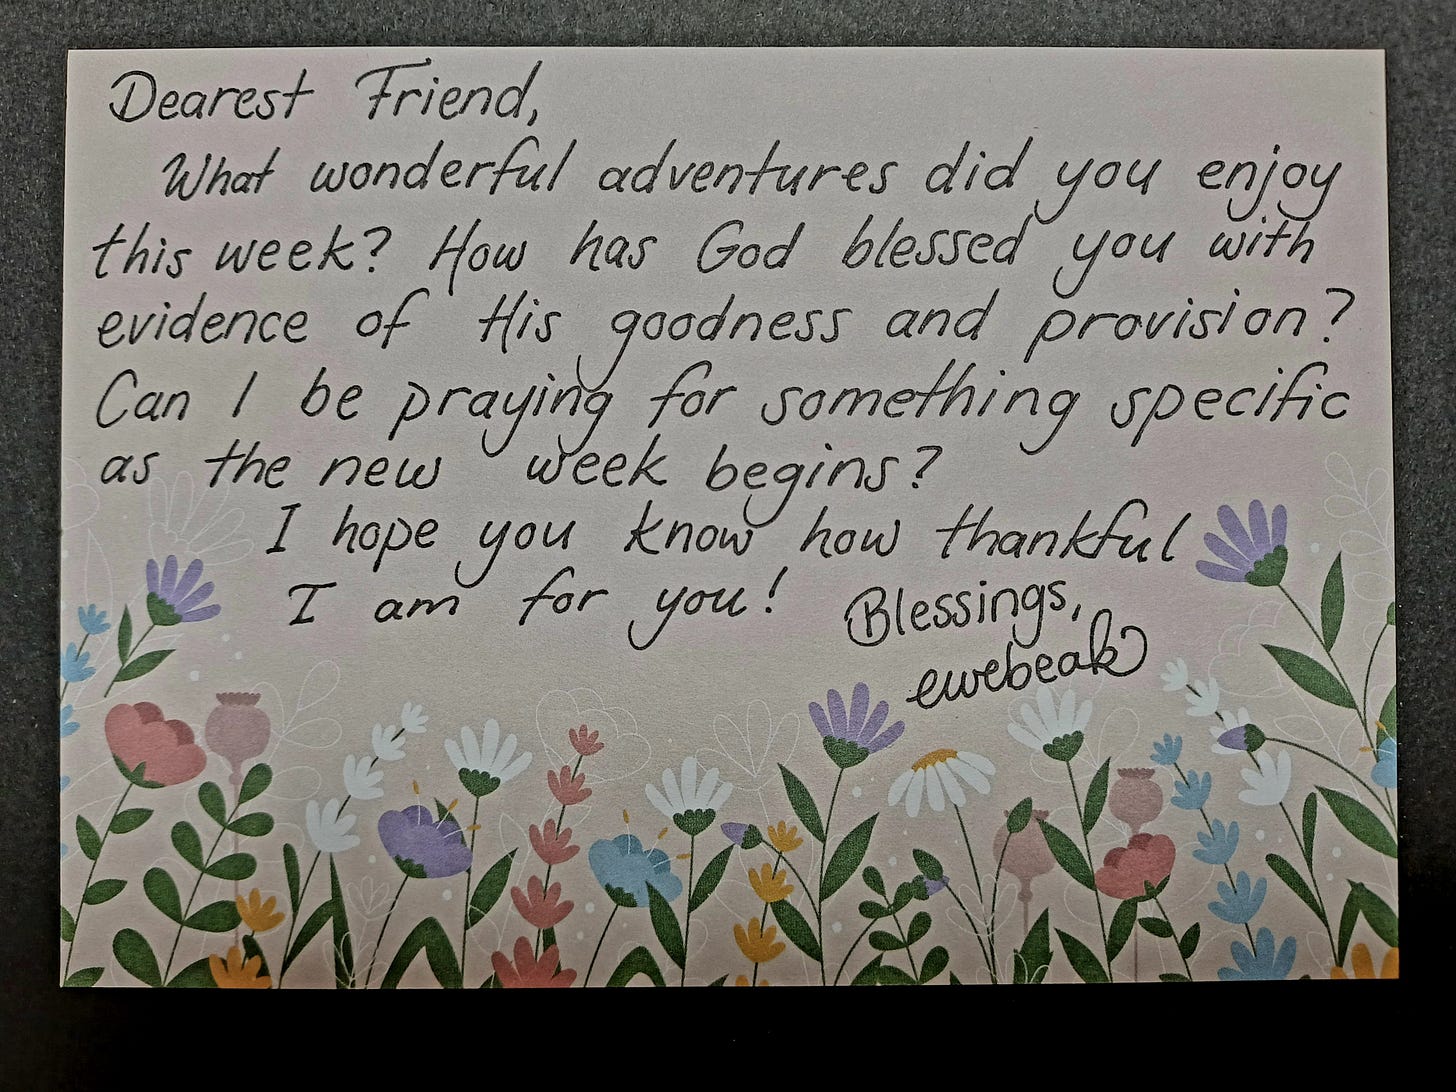 Dearest Friend,
What wonderful adventures did you enjoy
this week? How has God blessed you with
evidence of His goodness and provision?
Can I be praying for something specific
as the new week begins?
I hope you know how thankful
I am for you!
Blessings,
ewebeak